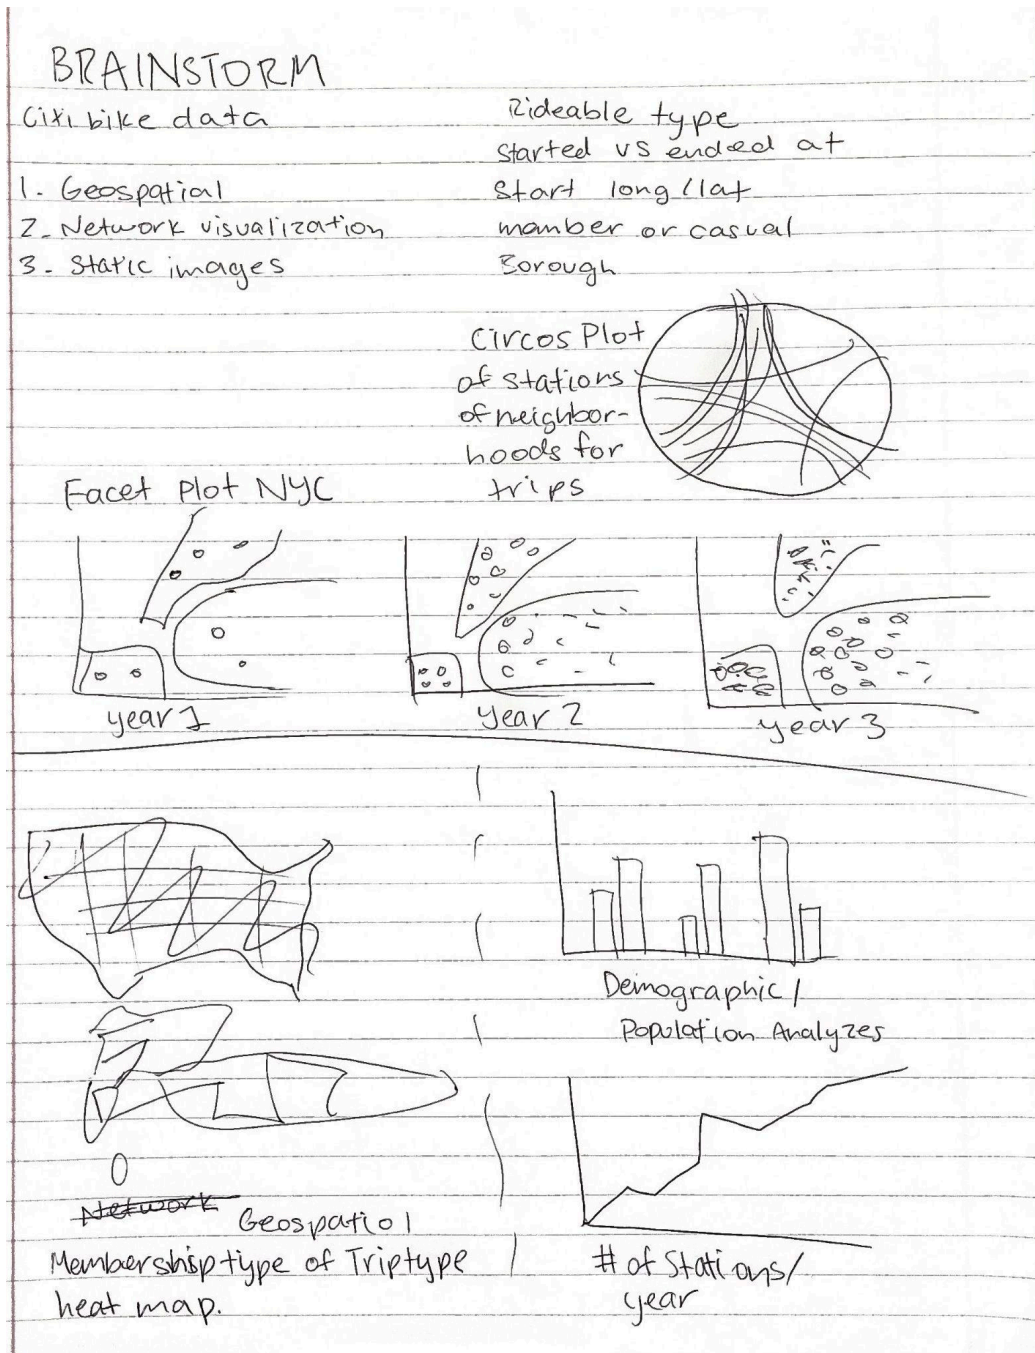 BRAINSTORM
Citi bike data
1. Geospatial
2. Network visualization
3. Static images
Rideable type
started vs ended at
Start long/lat
member or casual
Borough
Circos Plot
of stations
of neighbor-
hoods for
trips
Facet Plot NYC
year 1
year 2
year 3
Demographic/
Population Analyzes
Network Geospatial
Membership type of Triptype
heat map.
# of Stations/
year